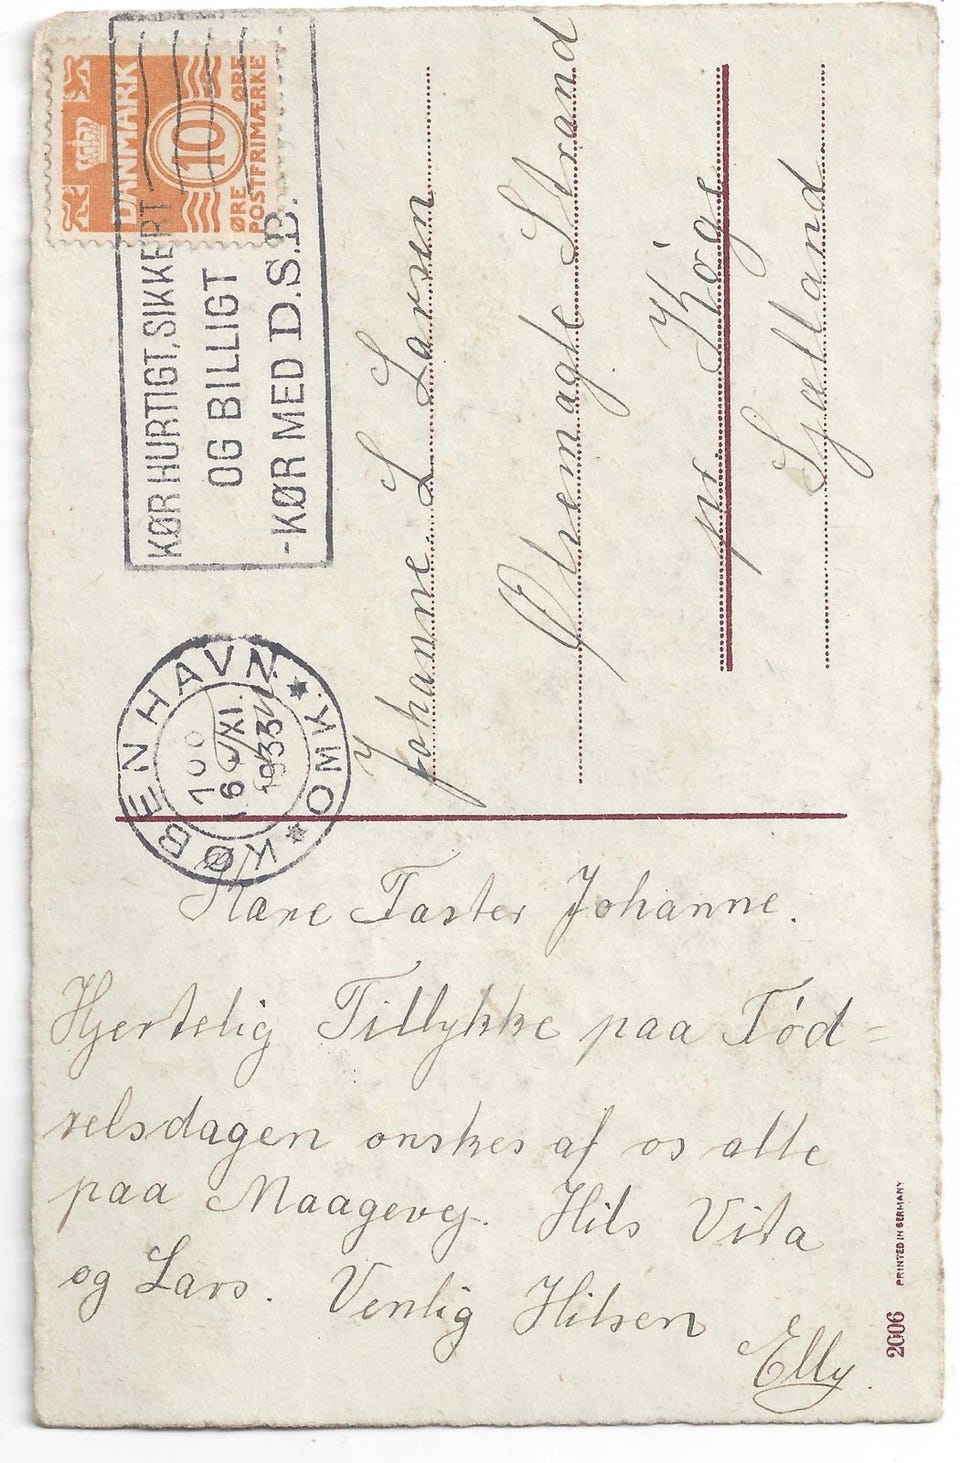 DANMARK
10
ØRE ØRE
POSTFRIMÆRKE
KØR HURTIGT, SIKKERT
OG BILLIGT
-KØR MED D.S.B.
KØBENHAVN * OMK *
6 XI.
1933
Johanne L Larsen
Ølsemagle Strand
pr Køge
Sjælland
Kære Faster Johanne.
Hjertelig Tillykke paa Fød=
selsdagen ønskes af os alle
paa Maagevej. Hils Vita
og Lars. Venlig Hilsen
Elly.
PRINTED IN GERMANY
2006